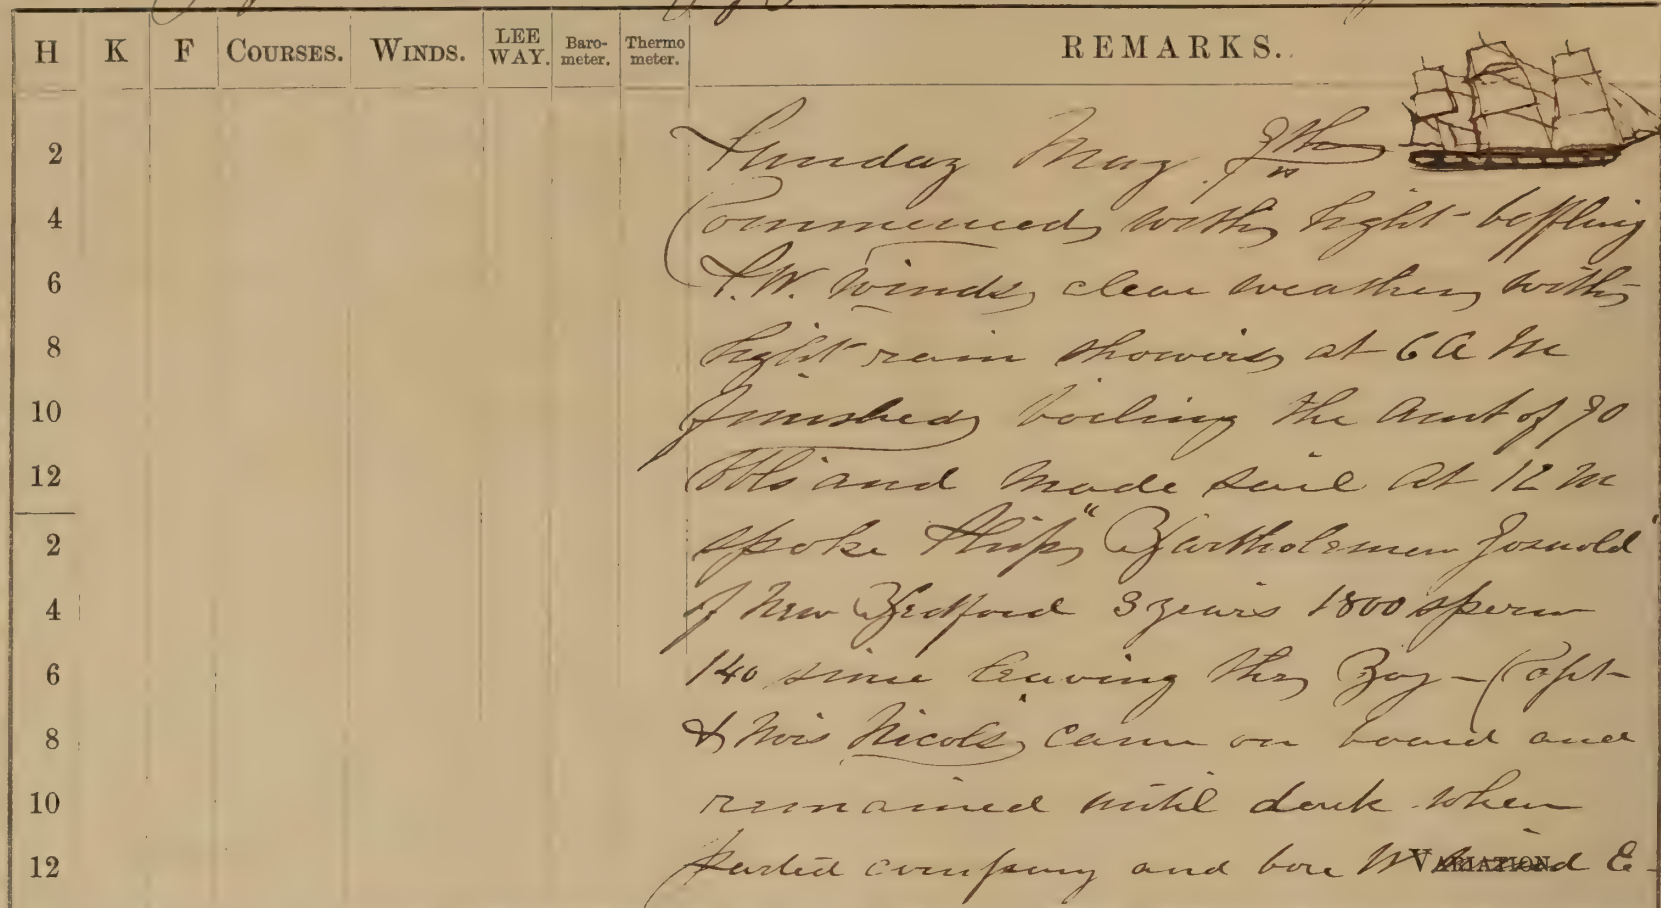 H K F COURSES. WINDS. LEE WAY. Barometer. Thermometer. REMARKS.
2 Sunday May 9th
4 Commenced with light baffling
6 S.W. Winds, clear weather, with
8 light rain showers at 6 A M
10 finished boiling the Amt of 90
12 bbls and made sail at 12 M
2 spoke Ship "Bartholemew Gosnold"
4 of New Bedford 3 years 1800 sperm
6 140 since leaving the Bay - Capt
8 & Mrs Nicols came on board and
10 remained until dark when
12 parted company and bore E
VARIATION